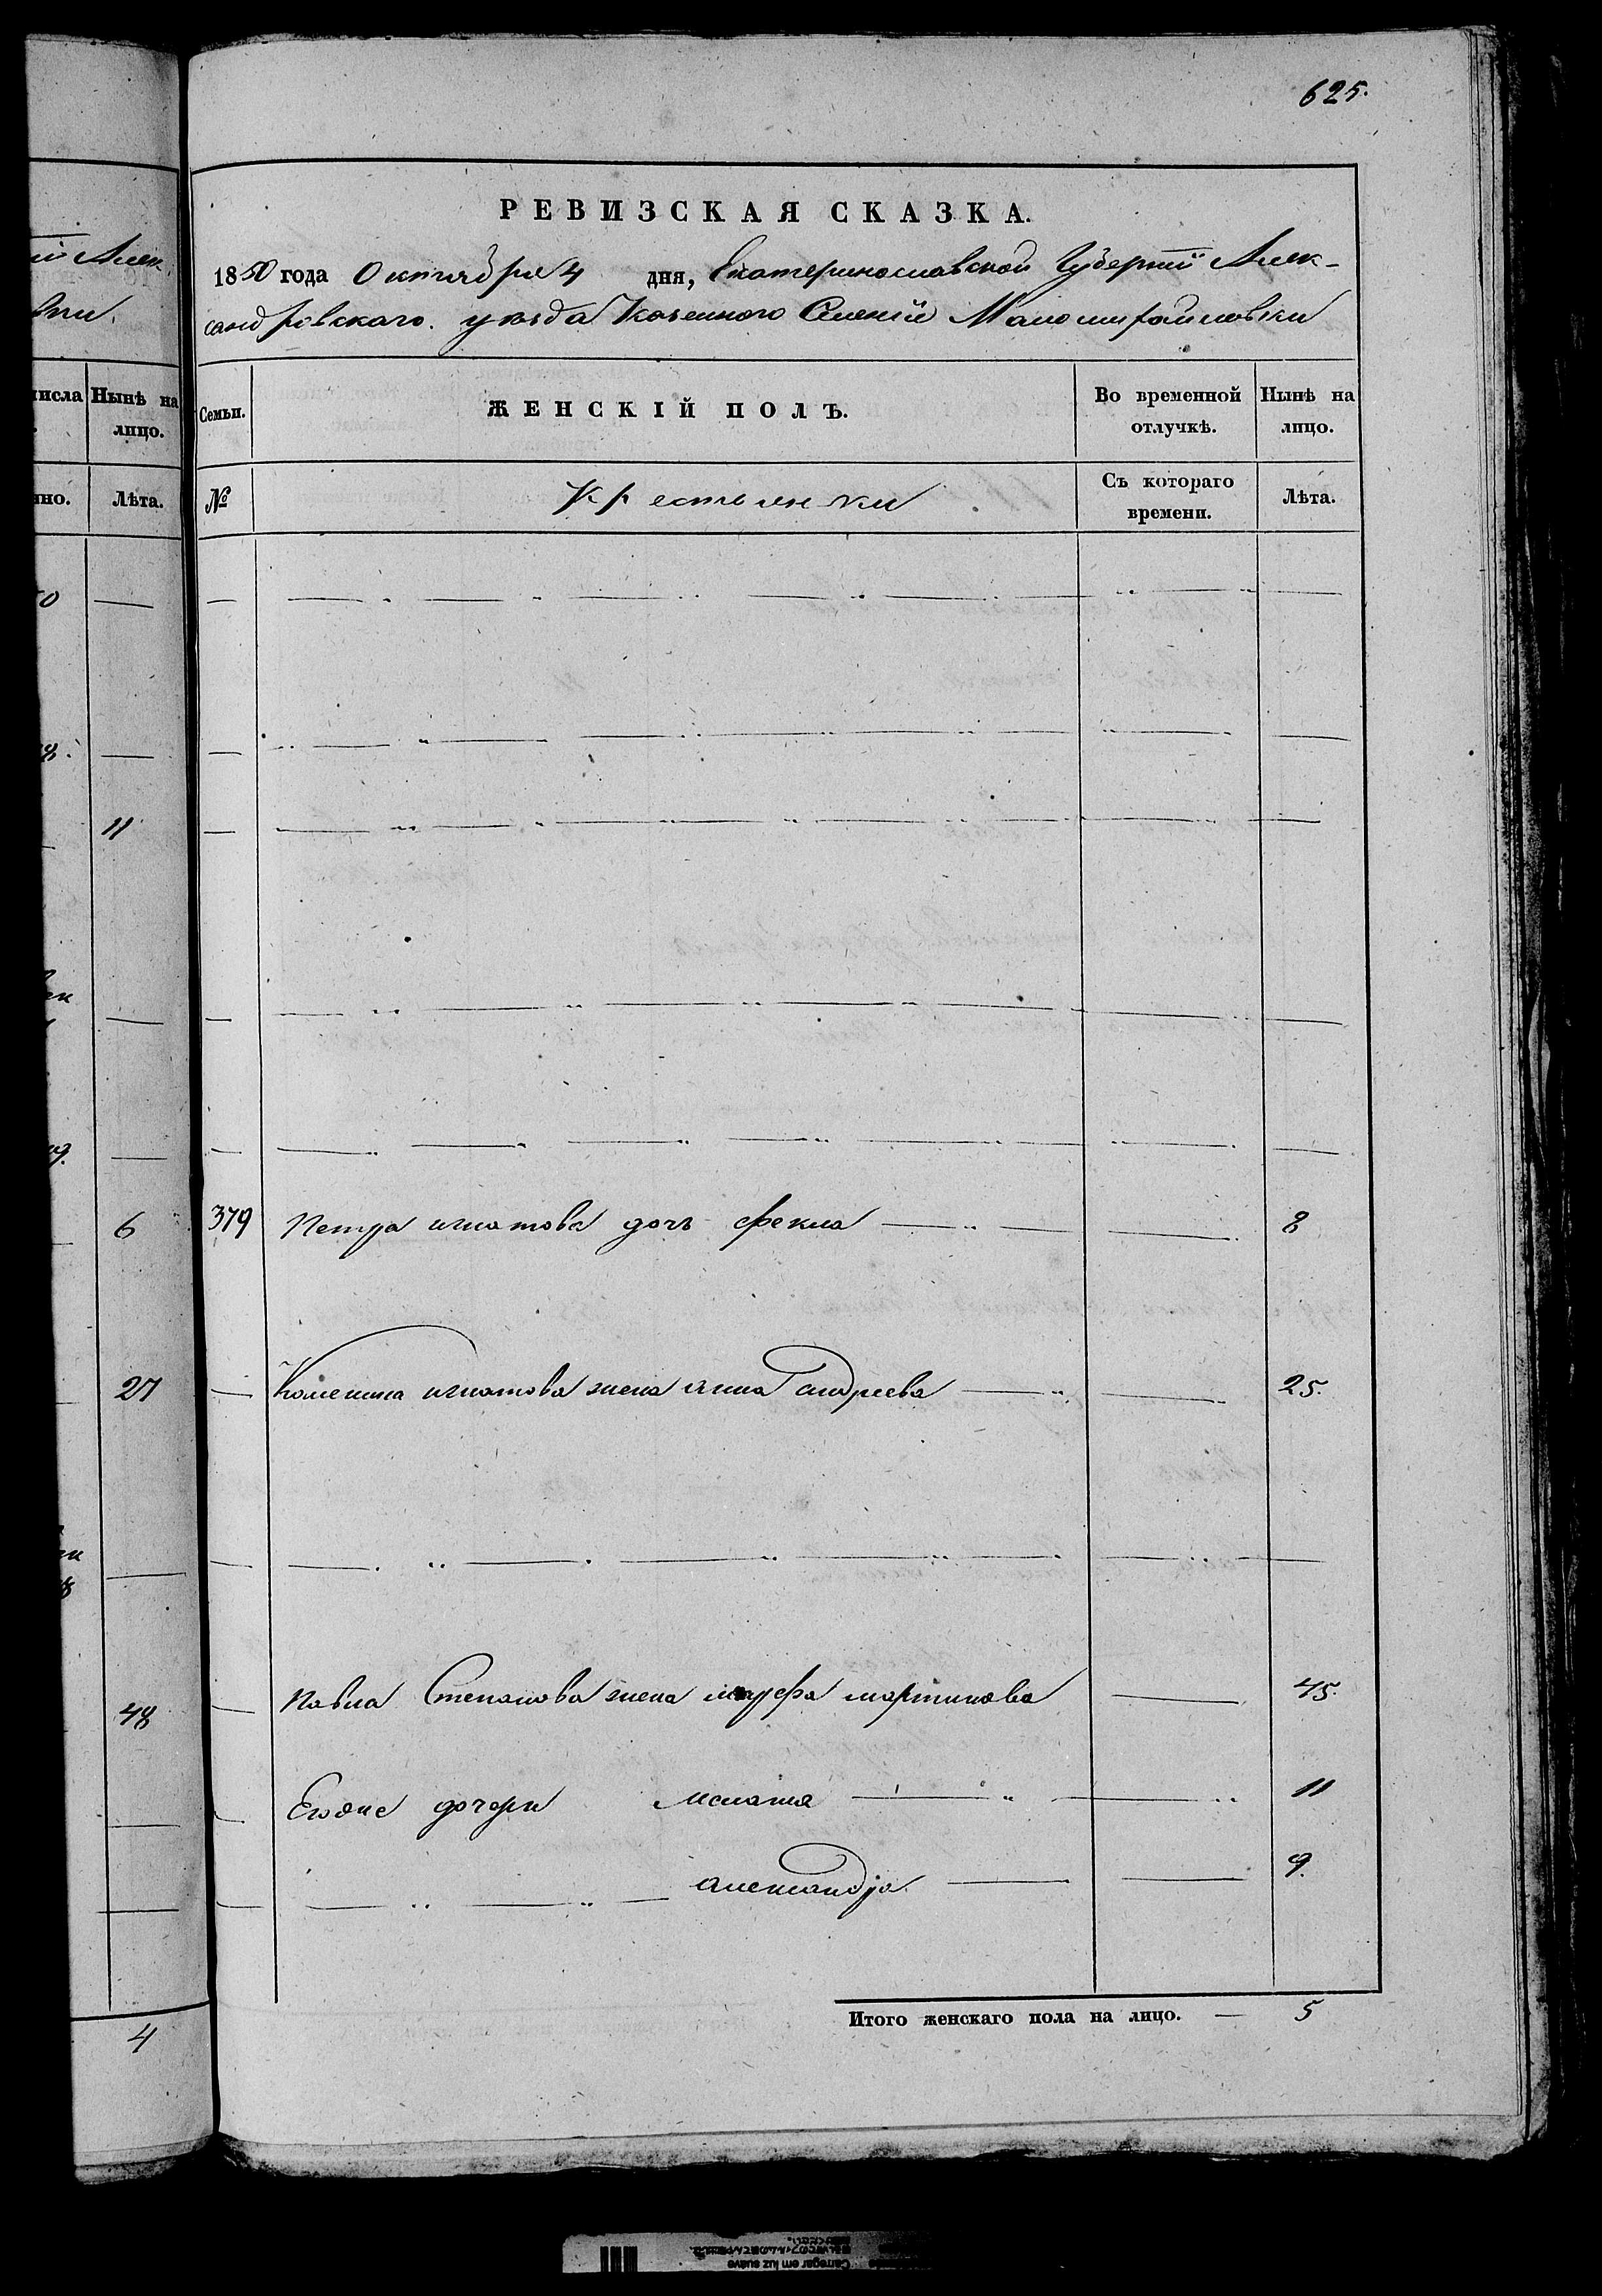 625.
РЕВИЗСКАЯ СКАЗКА.
1850 года Октября 4 дня, Екатеринославской Губернїи Алек-
сандровскаго. уезда Казенного Селенїя Маломихайловки
Семьи.
ЖЕНСКІЙ ПОЛЪ.
Во временной отлучкѣ.
Нынѣ на лицо.
№
Крестьянки
Съ котораго времени.
Лѣта.
379 Петра игнатова дочь фекла 8
игнатова жена анна андреева 25.
Павла Степанова жена мартинова 45.
Егоже дочери 11
александра 9.
Итого женскаго пола на лицо. — 5
Нынѣ на лицо.
Лѣта.
11
6
27
48
4
Carregar em luz suave